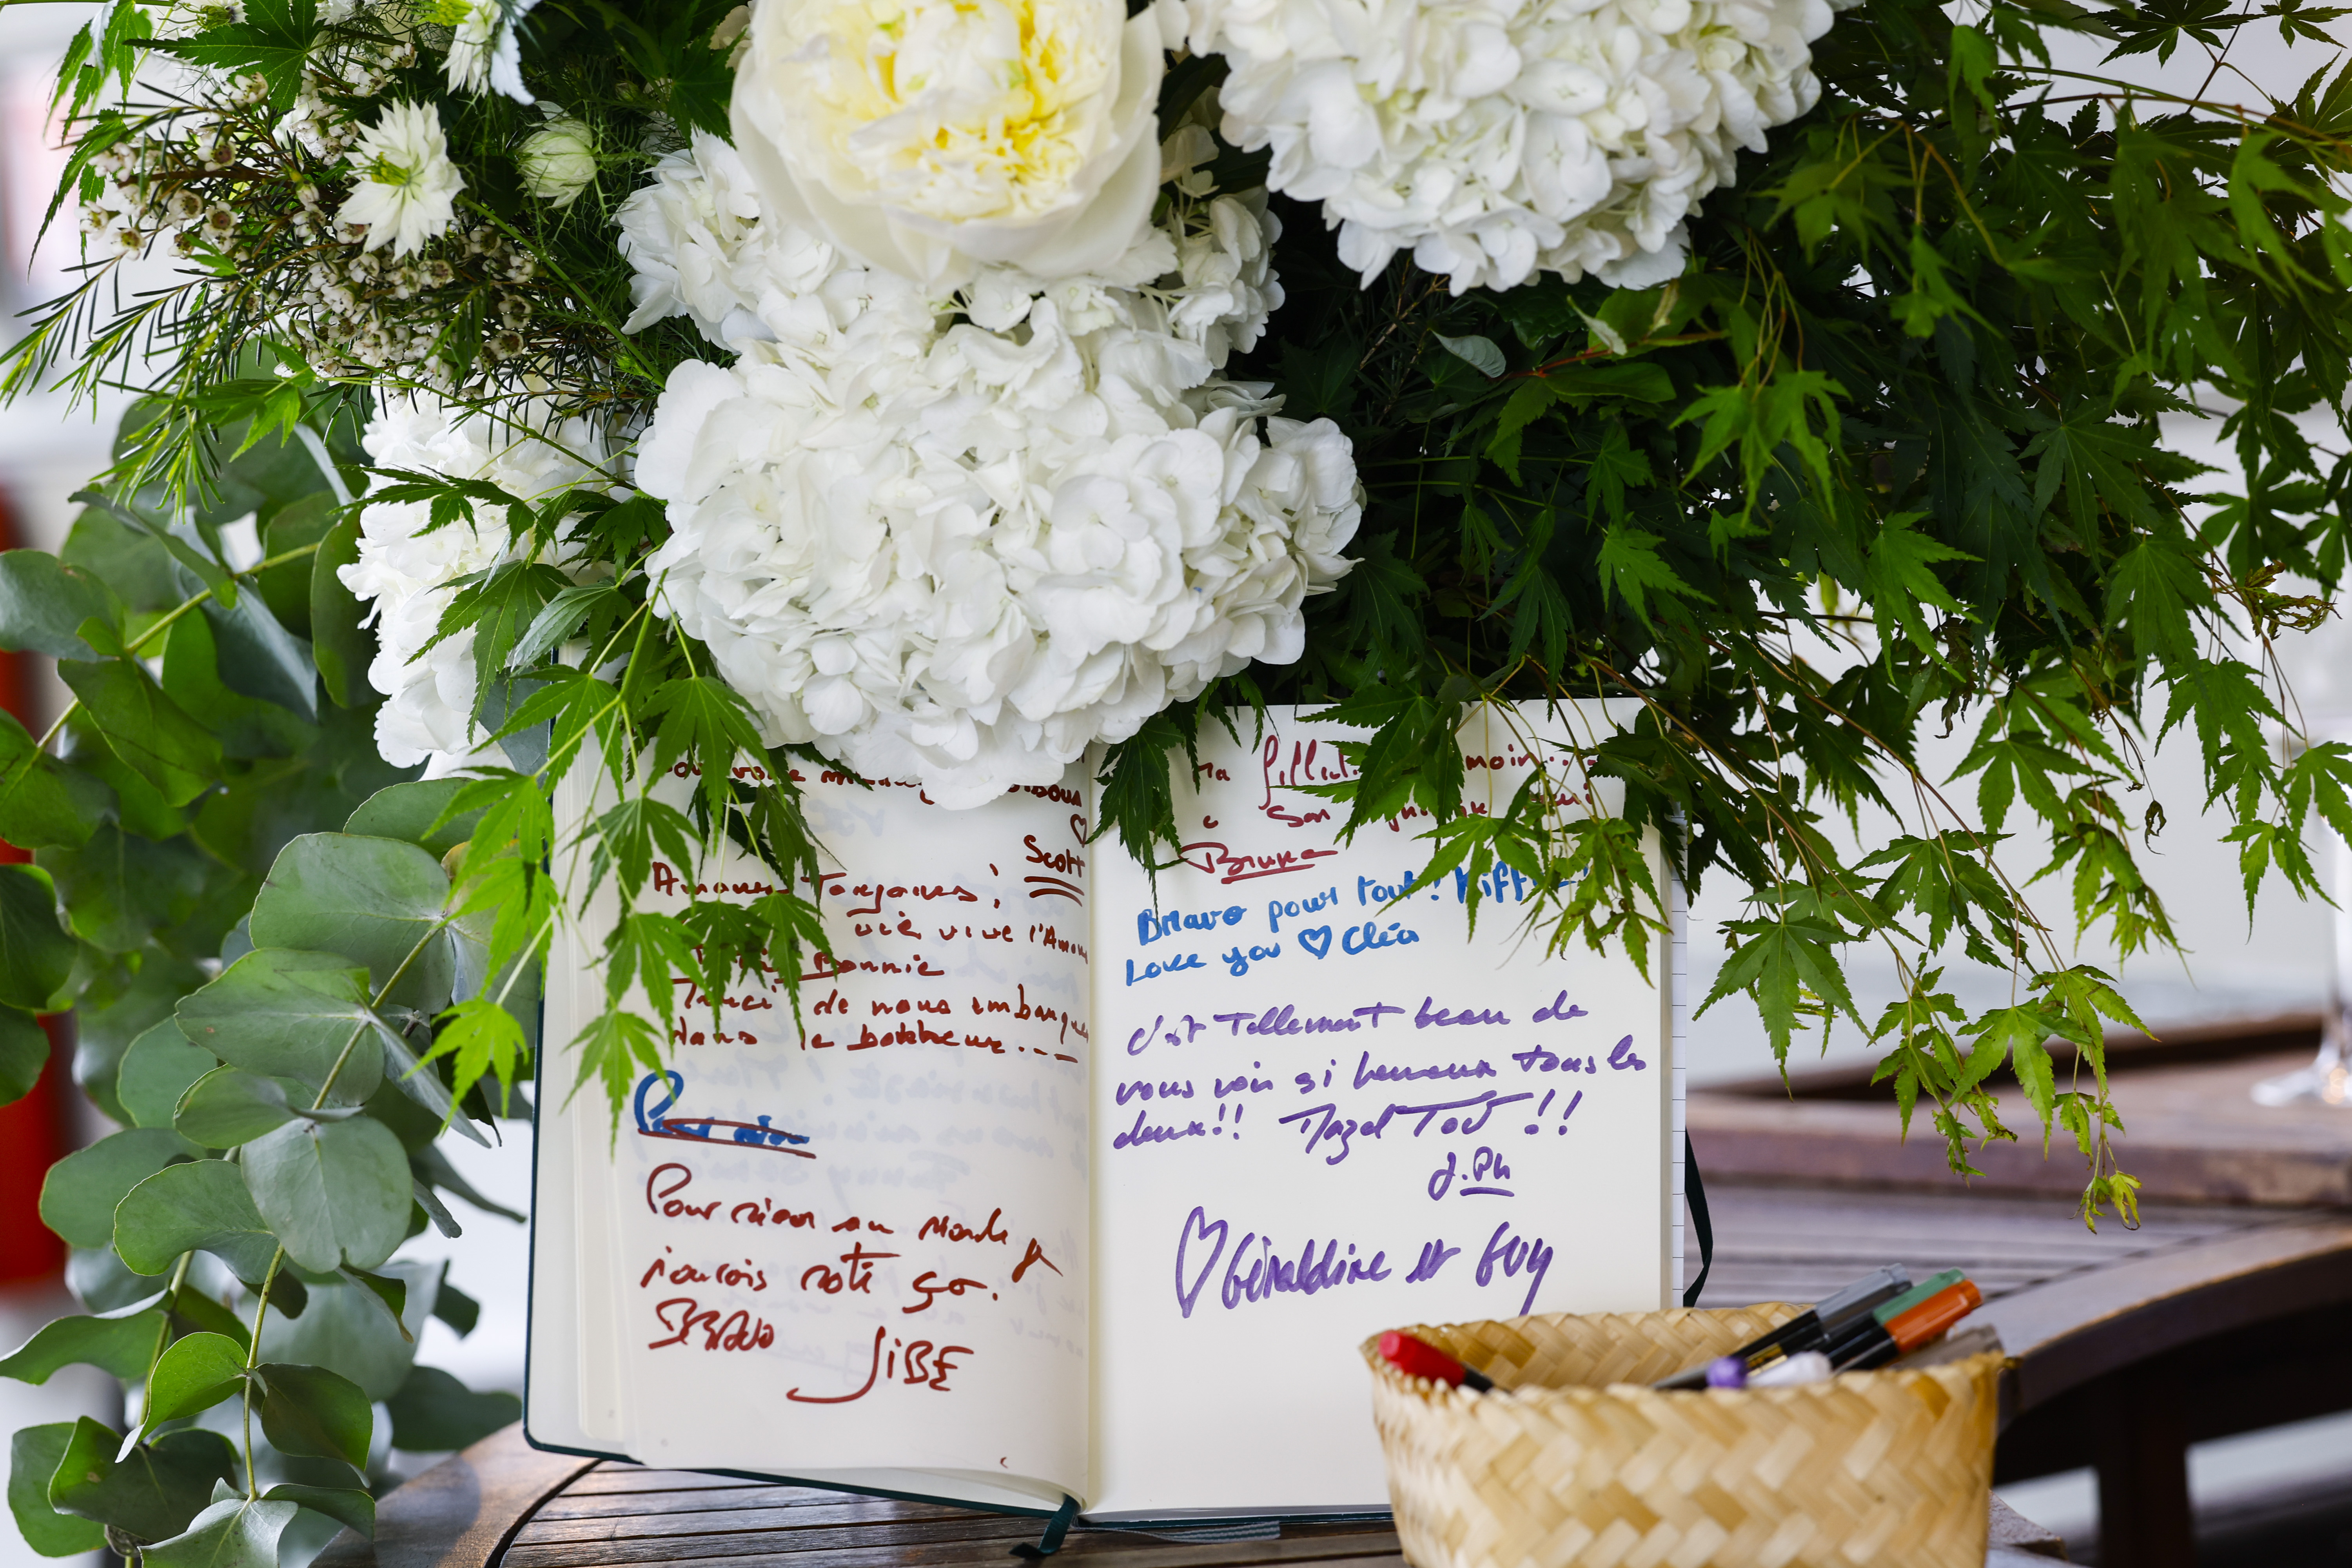 Scott
Amour Toujours !
vive l'Amour
Bonnie
Merci de nous embarquer
dans le bonheur...
Pour rien
Pour rien au Monde je
n'aurais raté ça.
BRAVO
JiBE
moin...
son
Bruno
Bravo pour tout !
Love you ♡ Cléa
c'est Tellement beau de
vous voir si heureux tous les
deux!! Mazel Tov !!
J.Ph
♡ Géraldine et Guy